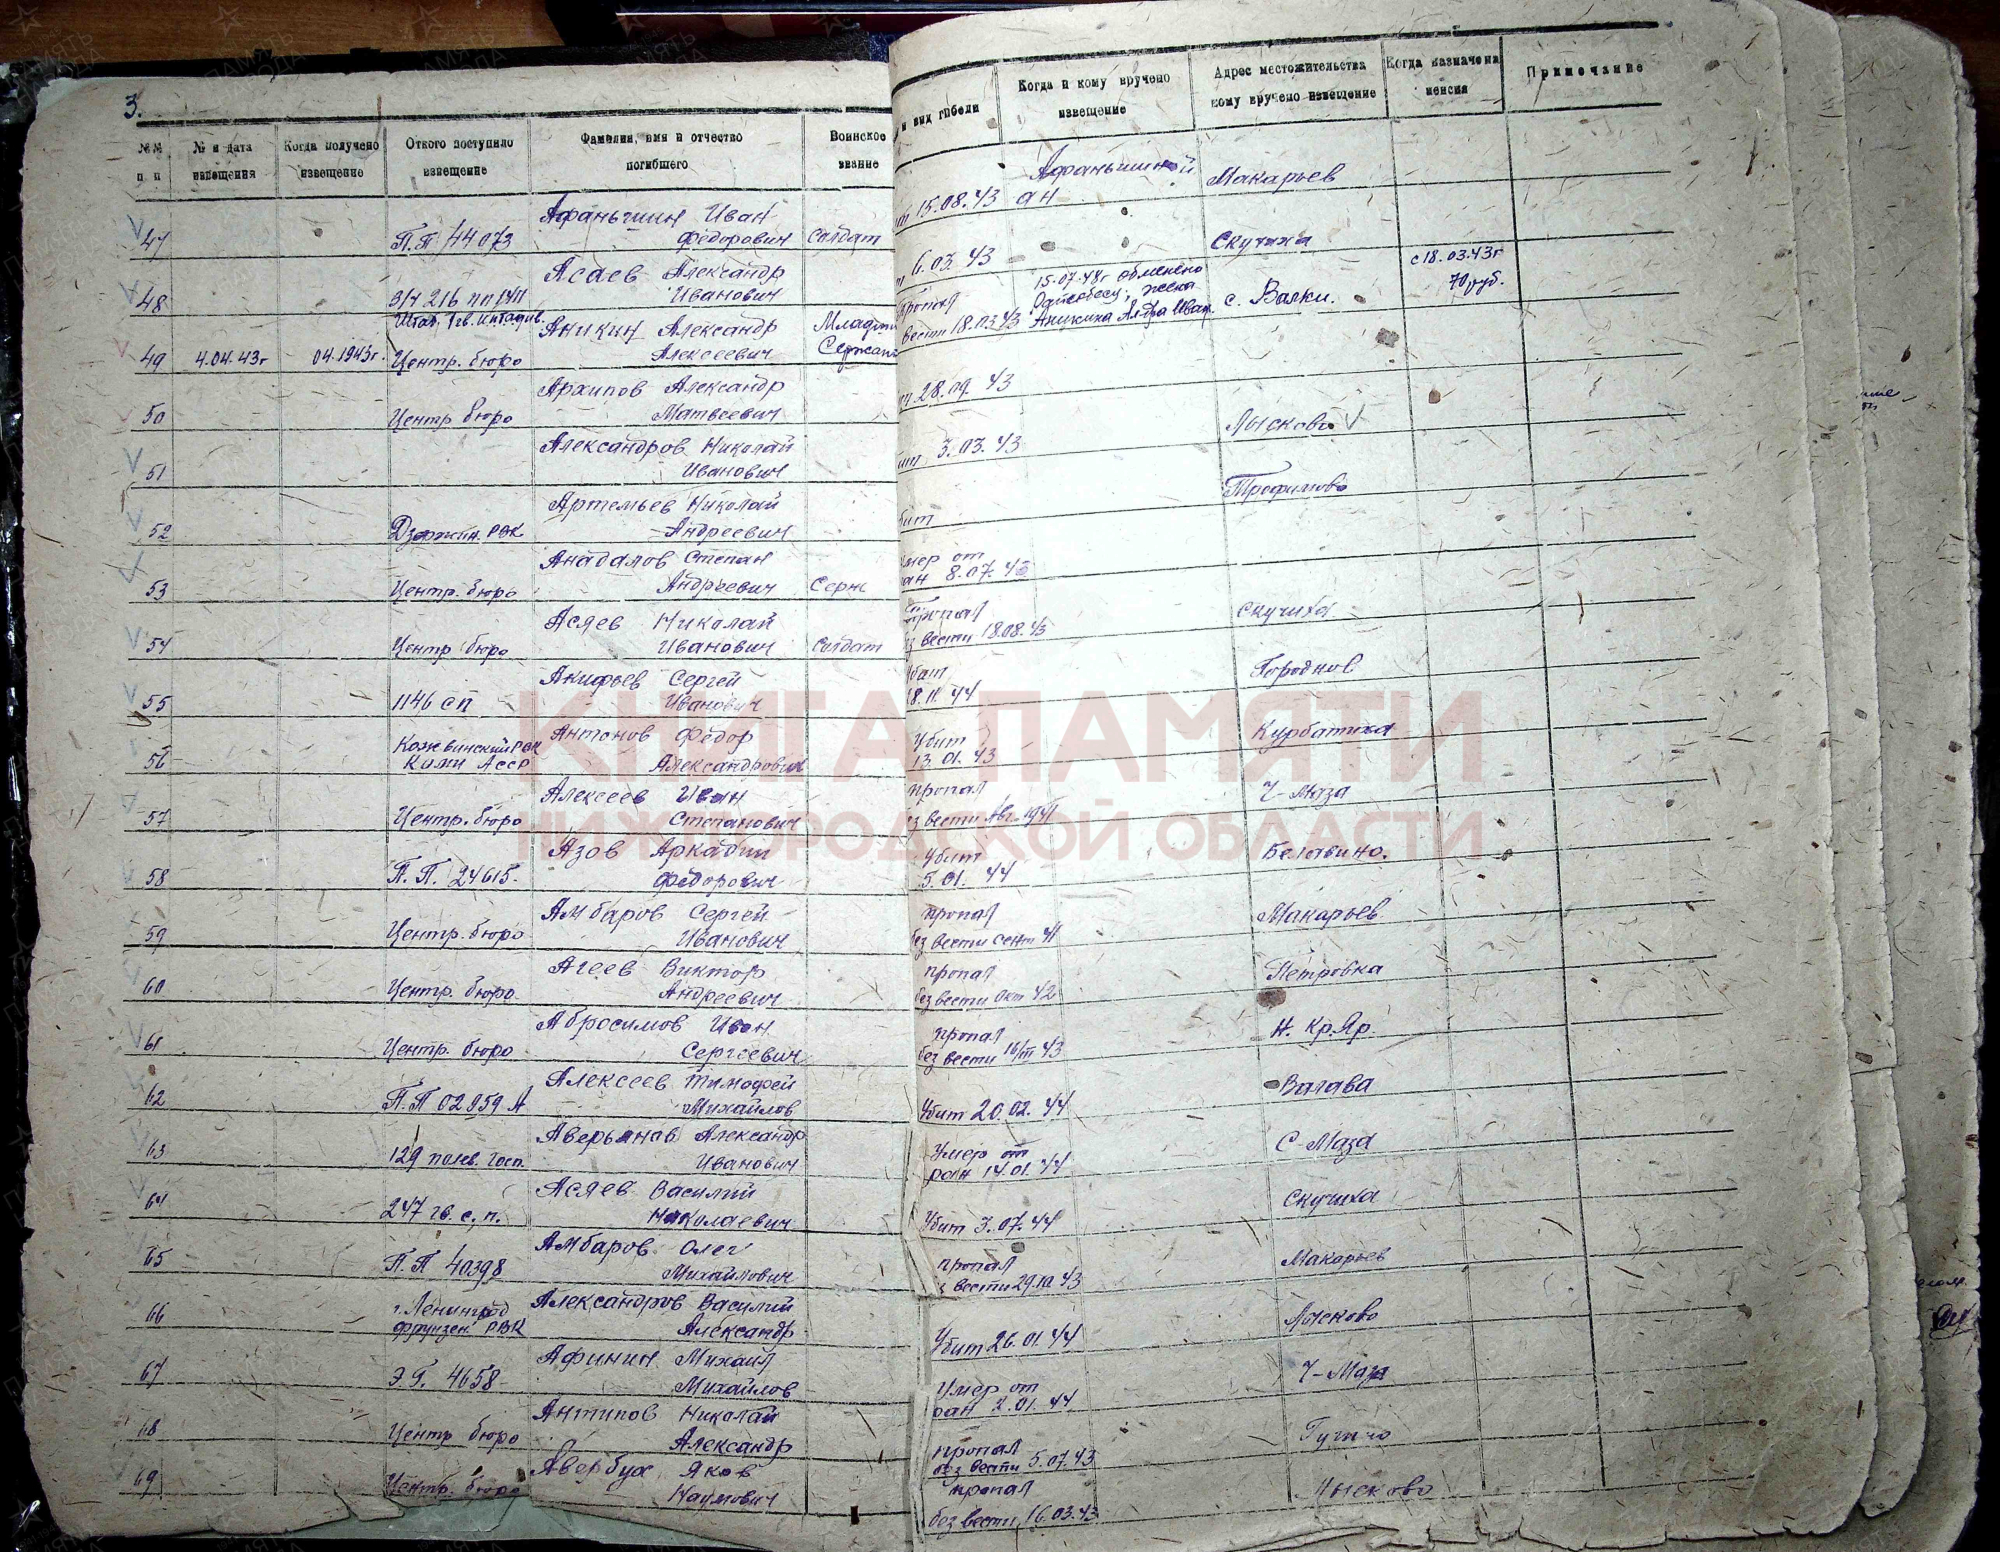 3.
№№ п п
№ и дата извещения
Когда получено извещение
Откого поступило извещение
Фамилия, имя и отчество погибшего
Воинское звание
и вид гибели
Когда и кому вручено извещение
Адрес местожительства кому вручено извещение
Когда назначена пенсия
Примечание
47 П.П. 44073 Афаньшин Иван Федорович солдат 15.08.43 Афаньшиной ан Макарьев
48 Асаев Александр Иванович 6.03.43 Скучиха
49 4.04.43г 04.1943г. Центр. бюро Аникин Александр Алексеевич Младш Сержан пропал вести 18.03.43 15.07.48г обменено жена Аникина Ал-дра Иван. с. Валки. с 18.03.43г 70 руб.
50 Центр бюро Архипов Александр Матвеевич 28.09.43
51 Александров Николай Иванович 3.03.43 Лысково
52 Дзержин. РВК Артемьев Николай Андреевич бит Трофимово
53 Центр. бюро Анадалов Степан Андреевич Серж умер от ран 8.07.43
54 Центр бюро Асяев Николай Иванович солдат Пропал з вести 18.08.43 Скучиха
55 1146 сп Акифьев Сергей Иванович Убит 18.11.44 Городнов
56 Кожвинский РВК Коми АССР Антонов Федор Александрович Убит 13.01.43 Курбатиха
57 Центр. бюро Алексеев Иван Степанович пропал з вести Авг. 1941 Ч-Маза
58 П.П. 24615 Азов Аркадии Федорович Убит 5.01.44 Белавино.
59 Центр. бюро Амбаров Сергей Иванович пропал без вести сент 41 Макарьев
60 Центр. бюро Агеев Виктор Андреевич пропал без вести окт 42 Петровка
61 Центр. бюро Абросимов Иван Сергеевич пропал без вести 16/III 43 Н. Кр.Яр.
62 П.П 02959 А Алексеев Тимофей Михайлов Убит 20.02.44 Валава
63 129 полев. госп. Аверьянов Александр Иванович Умер от ран 14.01.44 С-Маза
64 247 гв. с. п. Асяев Василий Николаевич Убит 3.07.44 Скучиха
65 П.П 40398 Амбаров Олег Михайлович пропал з вести 29.10.43 Макарьев
66 г. Ленинград фрунзен. РВК Александров Василий Александр Убит 26.01.44 Лысково
67 Э.Г. 4658 Афинин Михаил Михайлов Умер от ран 2.01.44 Ч-Маза
68 Центр бюро Антипов Николай Александр пропал без вести 5.07.43
69 Центр. бюро Авербух Яков Наумович пропал без вести 16.03.43 Лысково
КНИГА ПАМЯТИ
НИЖЕГОРОДСКОЙ ОБЛАСТИ